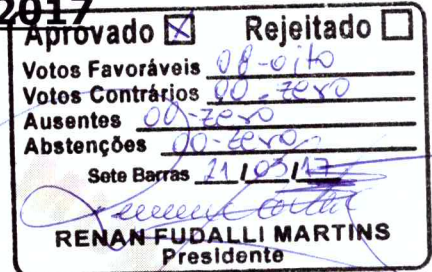 2017
Aprovado ☒ Rejeitado ☐
Votos Favoráveis 08-oito
Votos Contrários 00-zero
Ausentes 00-zero
Abstenções 00-zero
Sete Barras 21/03/17
RENAN FUDALLI MARTINS
Presidente